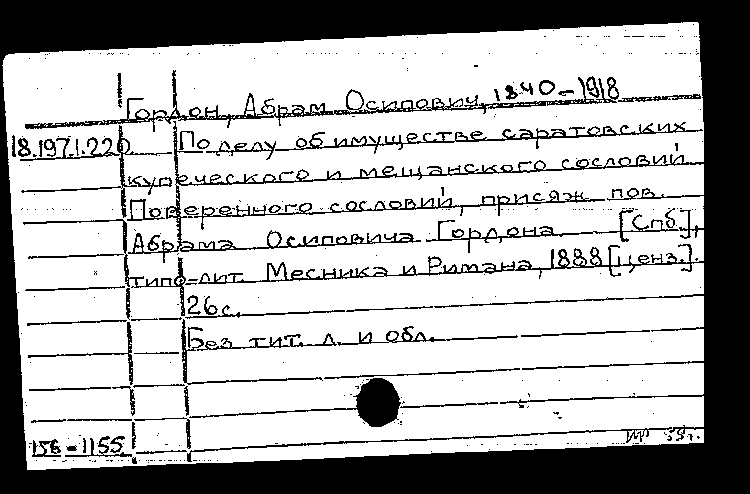 Гордон, Абрам Осипович, 1840-1918
18.197.1.220. По делу об имуществе саратовских
купеческого и мещанского сословий
Поверенного сословий, присяж. пов.
Абрама Осиповича Гордона. [Спб],
типо-лит. Месника и Римана, 1888 [ценз.].
26 с.
Без тит. л. и обл.
156-1155